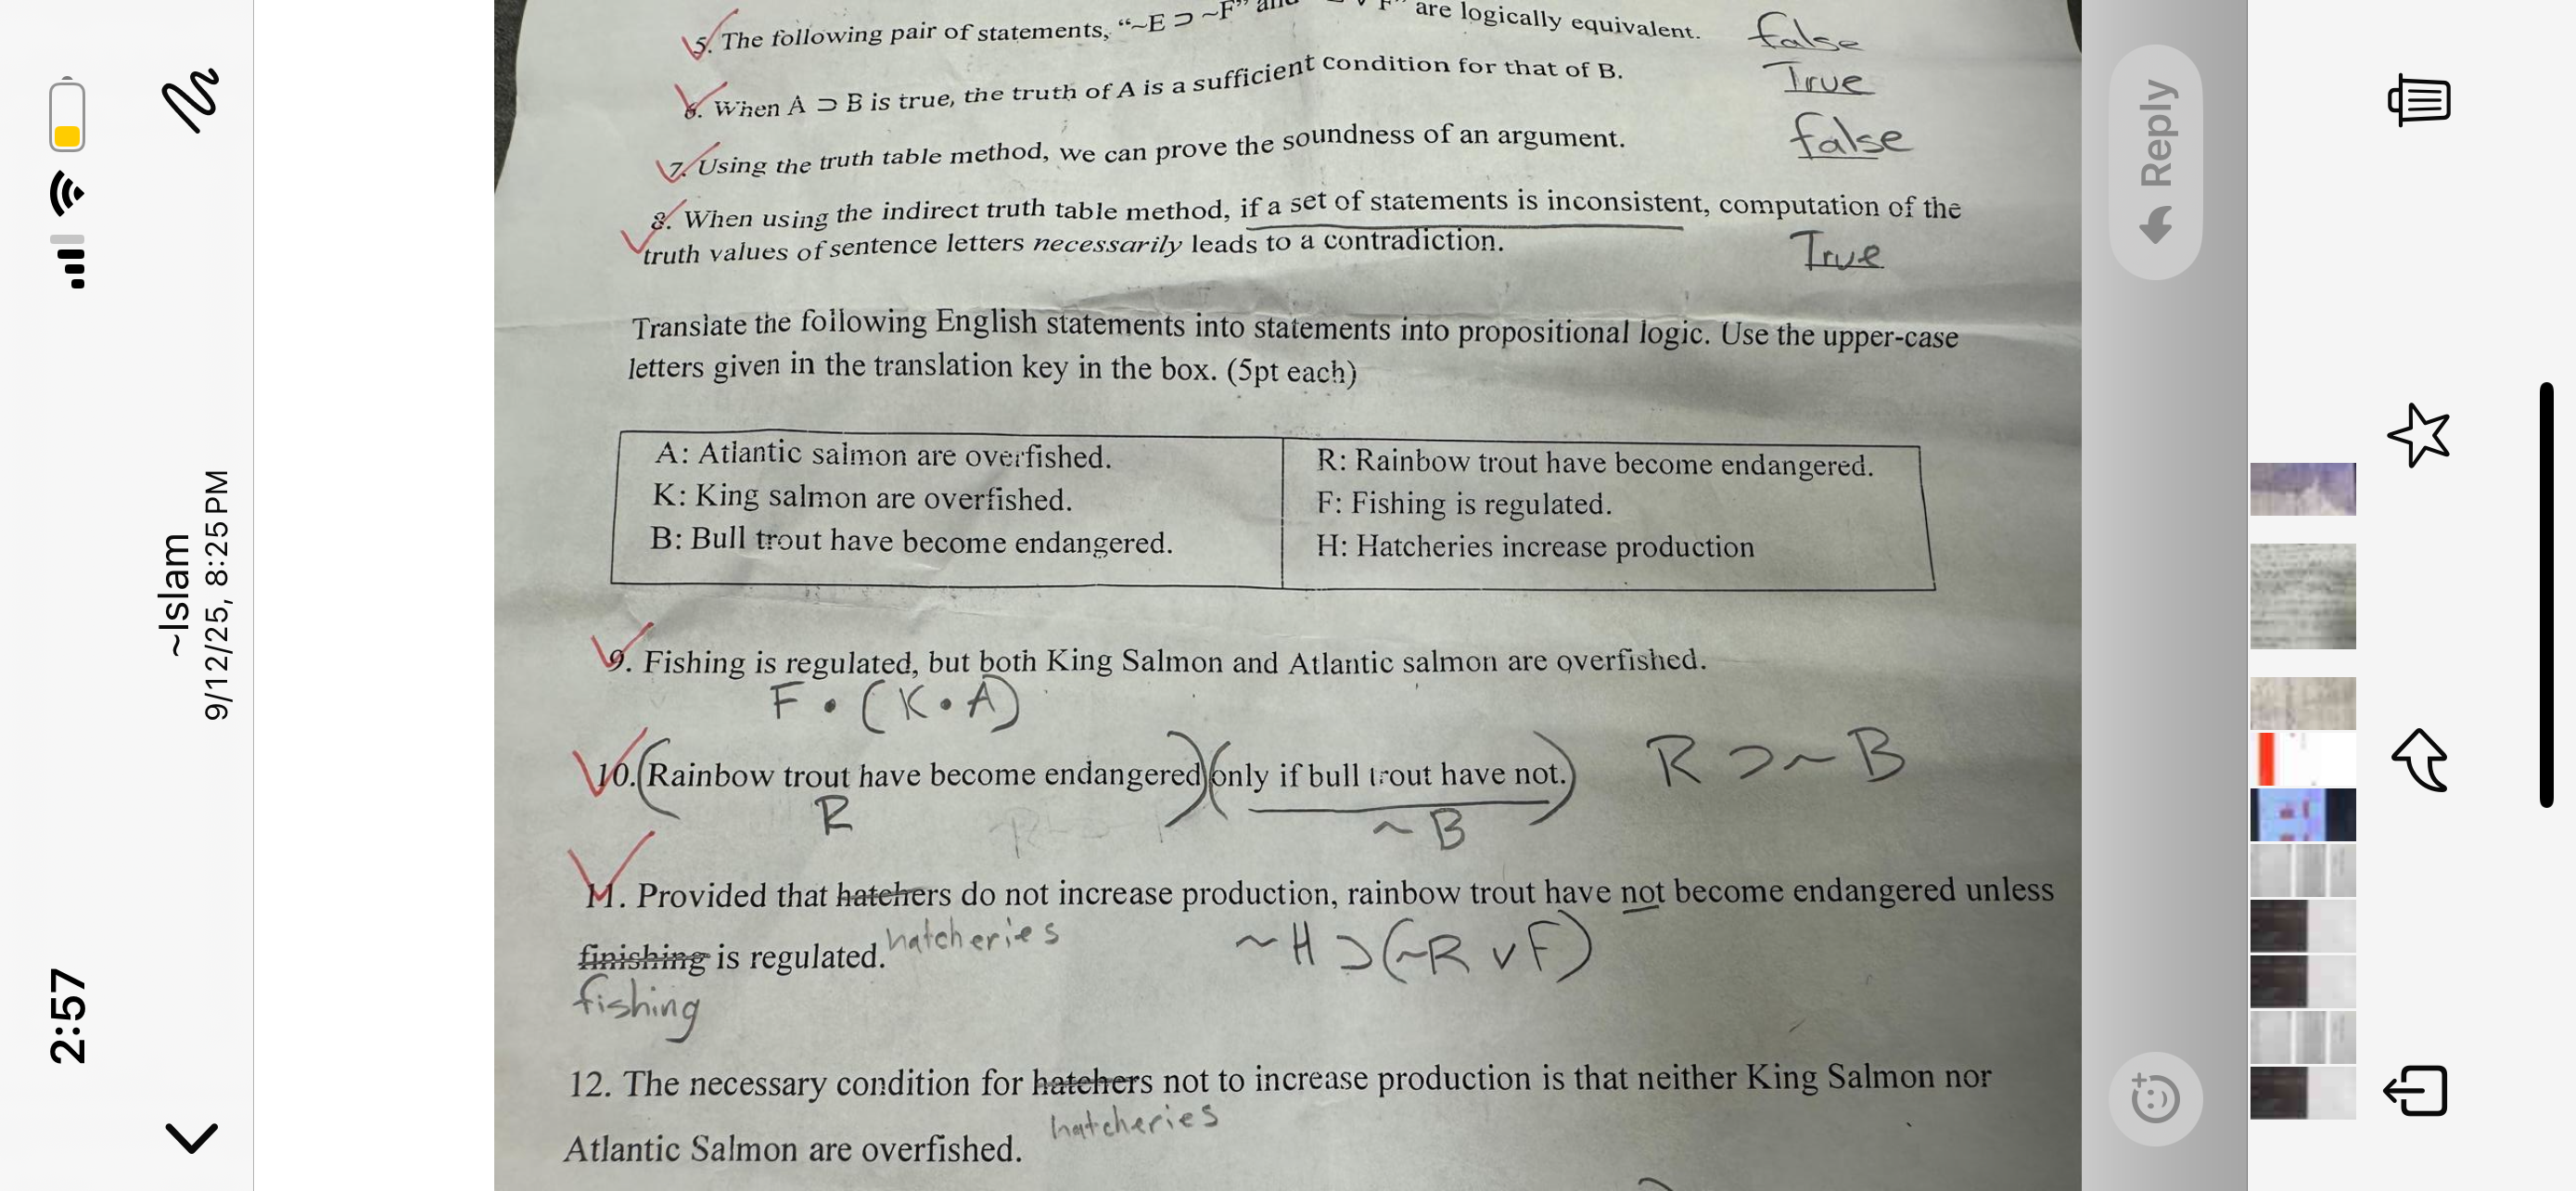 5. The following pair of statements, “~E ⊃ ~F” and v F” are logically equivalent. false
6. When A ⊃ B is true, the truth of A is a sufficient condition for that of B. True
7. Using the truth table method, we can prove the soundness of an argument. false
8. When using the indirect truth table method, if a set of statements is inconsistent, computation of the
truth values of sentence letters necessarily leads to a contradiction. True
Translate the following English statements into statements into propositional logic. Use the upper-case
letters given in the translation key in the box. (5pt each)
A: Atlantic salmon are overfished.
K: King salmon are overfished.
B: Bull trout have become endangered.
R: Rainbow trout have become endangered.
F: Fishing is regulated.
H: Hatcheries increase production
9. Fishing is regulated, but both King Salmon and Atlantic salmon are overfished.
F • (K • A)
10. (Rainbow trout have become endangered) (only if bull trout have not.) R ⊃ ~ B
R ~ B
11. Provided that hatchers do not increase production, rainbow trout have not become endangered unless
finishing is regulated. hatcheries ~H ⊃ (~R v F)
fishing
12. The necessary condition for hatchers not to increase production is that neither King Salmon nor
hatcheries
Atlantic Salmon are overfished.
2:57
~Islam
9/12/25, 8:25 PM
Reply